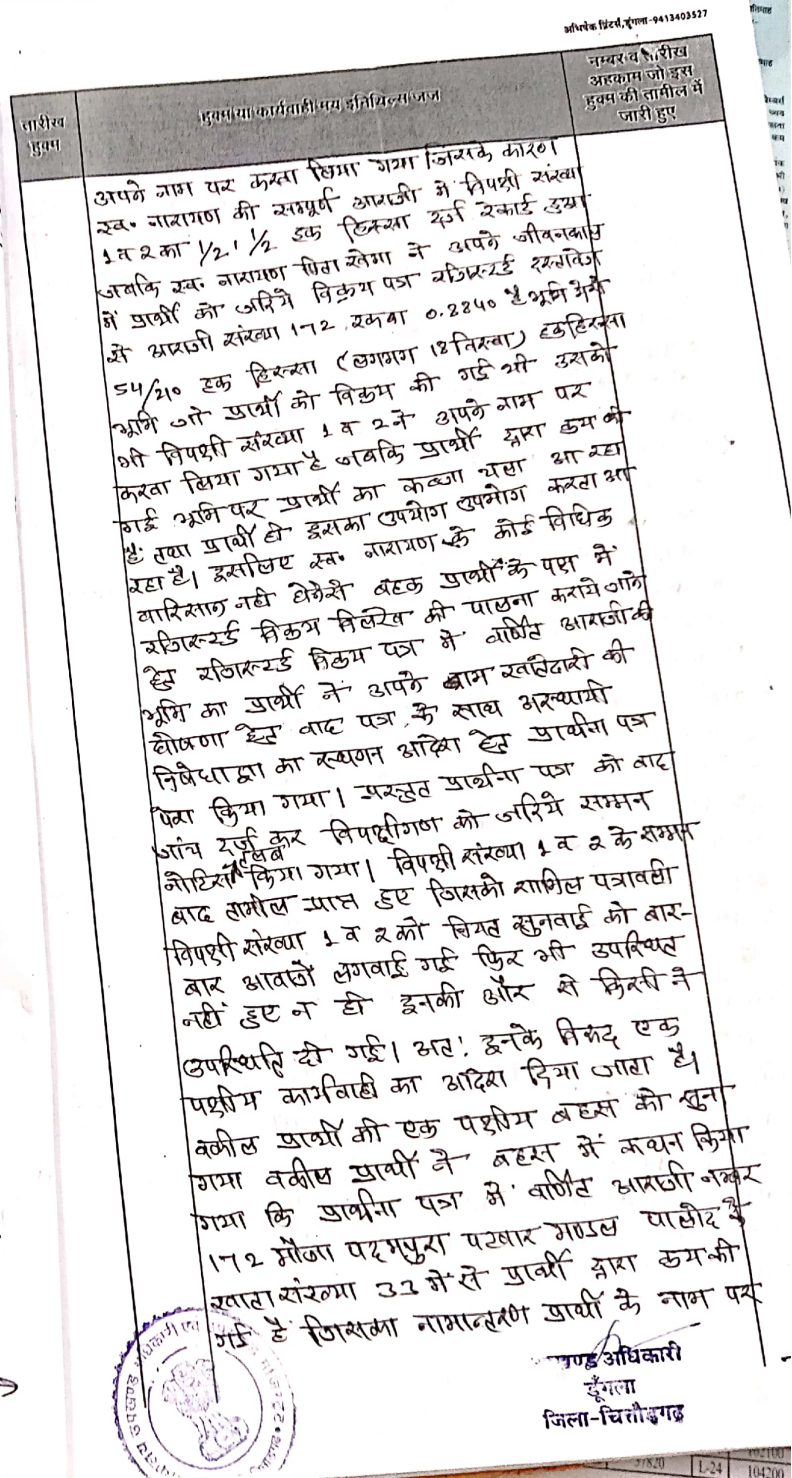 अभिषेक प्रिंटर्स, डूंगला-9413403527
तारीख हुक्म
हुक्म या कार्यवाही मय इनिशियल्स जज
नम्बर व तारीख
अहकाम जो इस
हुक्म की तामील में
जारी हुए
अपने नाम पर करवा लिया गया जिसके कारण
स्व॰ नारायण की सम्पूर्ण आराजी में विपक्षी संख्या
1 व 2 का 1/2, 1/2 हक हिस्सा दर्ज रेकार्ड हुआ
जबकि स्व॰ नारायण पिता खेमा ने अपने जीवनकाल
में प्रार्थी को जरिये विक्रय पत्र रजिस्टर्ड दस्तावेज
से आराजी संख्या 172 रकबा 0.8840 है भूमि मेसे
54/210 हक हिस्सा (लगभग 18 बिस्वा) हक हिस्सा
भूमि जो प्रार्थी को विक्रय की गई थी उसको
भी विपक्षी संख्या 1 व 2 ने अपने नाम पर
करवा लिया गया है जबकि प्रार्थी द्वारा क्रय की
गई भूमि पर प्रार्थी का कब्जा चला आ रहा
है तथा प्रार्थी ही इसका उपयोग उपभोग करता आ
रहा है। इसलिए स्व॰ नारायण के कोई विधिक
वारिसान नही होनेसे बहक प्रार्थी के पक्ष में
रजिस्टर्ड विक्रय विलेख की पालना कराये जाने
हेतु रजिस्टर्ड विक्रय पत्र में वर्णित आराजी की
भूमि का प्रार्थी ने अपने नाम खातेदारी की
घोषणा हेतु वाद पत्र के साथ अस्थायी
निषेधाज्ञा का स्थगन आदेश हेतु प्रार्थना पत्र
पेश किया गया। प्रस्तुत प्रार्थना पत्र को बाद
जांच दर्ज कर विपक्षीगण को जरिये सम्मन
नोटिस तलब किया गया। विपक्षी संख्या 1 व 2 के सम्मन
बाद तामील प्राप्त हुए जिसको शामिल पत्रावली
विपक्षी संख्या 1 व 2 को नियत सुनवाई को बार-
बार आवाजे लगवाई गई फिर भी उपस्थित
नहीं हुए न ही इनकी और से किसी ने
उपस्थिति दी गई। अत: इनके विरुद्ध एक
पक्षीय कार्यवाही का आदेश दिया जाता है।
वकील प्रार्थी की एक पक्षीय बहस को सुना
गया वकील प्रार्थी ने बहस में कथन किया
गया कि प्रार्थना पत्र में वर्णित आराजी नम्बर
172 मौजा पदमपुरा पटवार मण्डल पालोद के
खाता संख्या 33 मे से प्रार्थी द्वारा क्रय की
गई है जिसका नामान्तरण प्रार्थी के नाम पर
खण्ड अधिकारी
डूँगला
जिला-चित्तौड़गढ़
L-24
104200